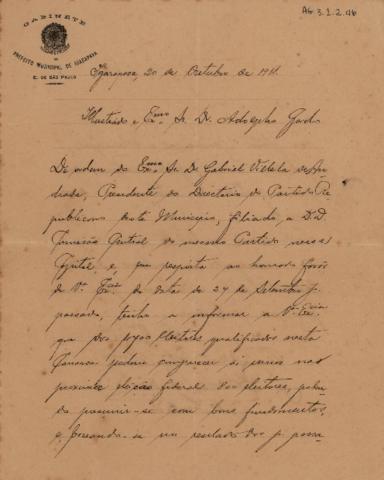 AG.3.1.2.46
GABINETE
DO
PREFEITO MUNICIPAL DE IGARAPAVA
E. DE SÃO PAULO
Igarapava, 20 de Outubro de 191
Illustrado e Exmo. Sr. Dr. Adolpho Gordo
De ordem do Exmo. Sr. Dr. Gabriel Villela de An-
drada, Presidente do Directorio do Partido Re-
publicano deste Municipio, filiado a D.D.
Commissão Central do mesmo Partido nessa
Capital, e em resposta ao honrado favor
de V. Excia. de data de 27 de Setembro p.
passado, tenho a informar a V. Excia.
que dos eleitores qualificados nesta
Comarca podem comparecer ás urnas na
proxima eleição federal eleitores, poden-
do presumir-se com bons fundamentos,
e baseando-se no resultado do p. passa-